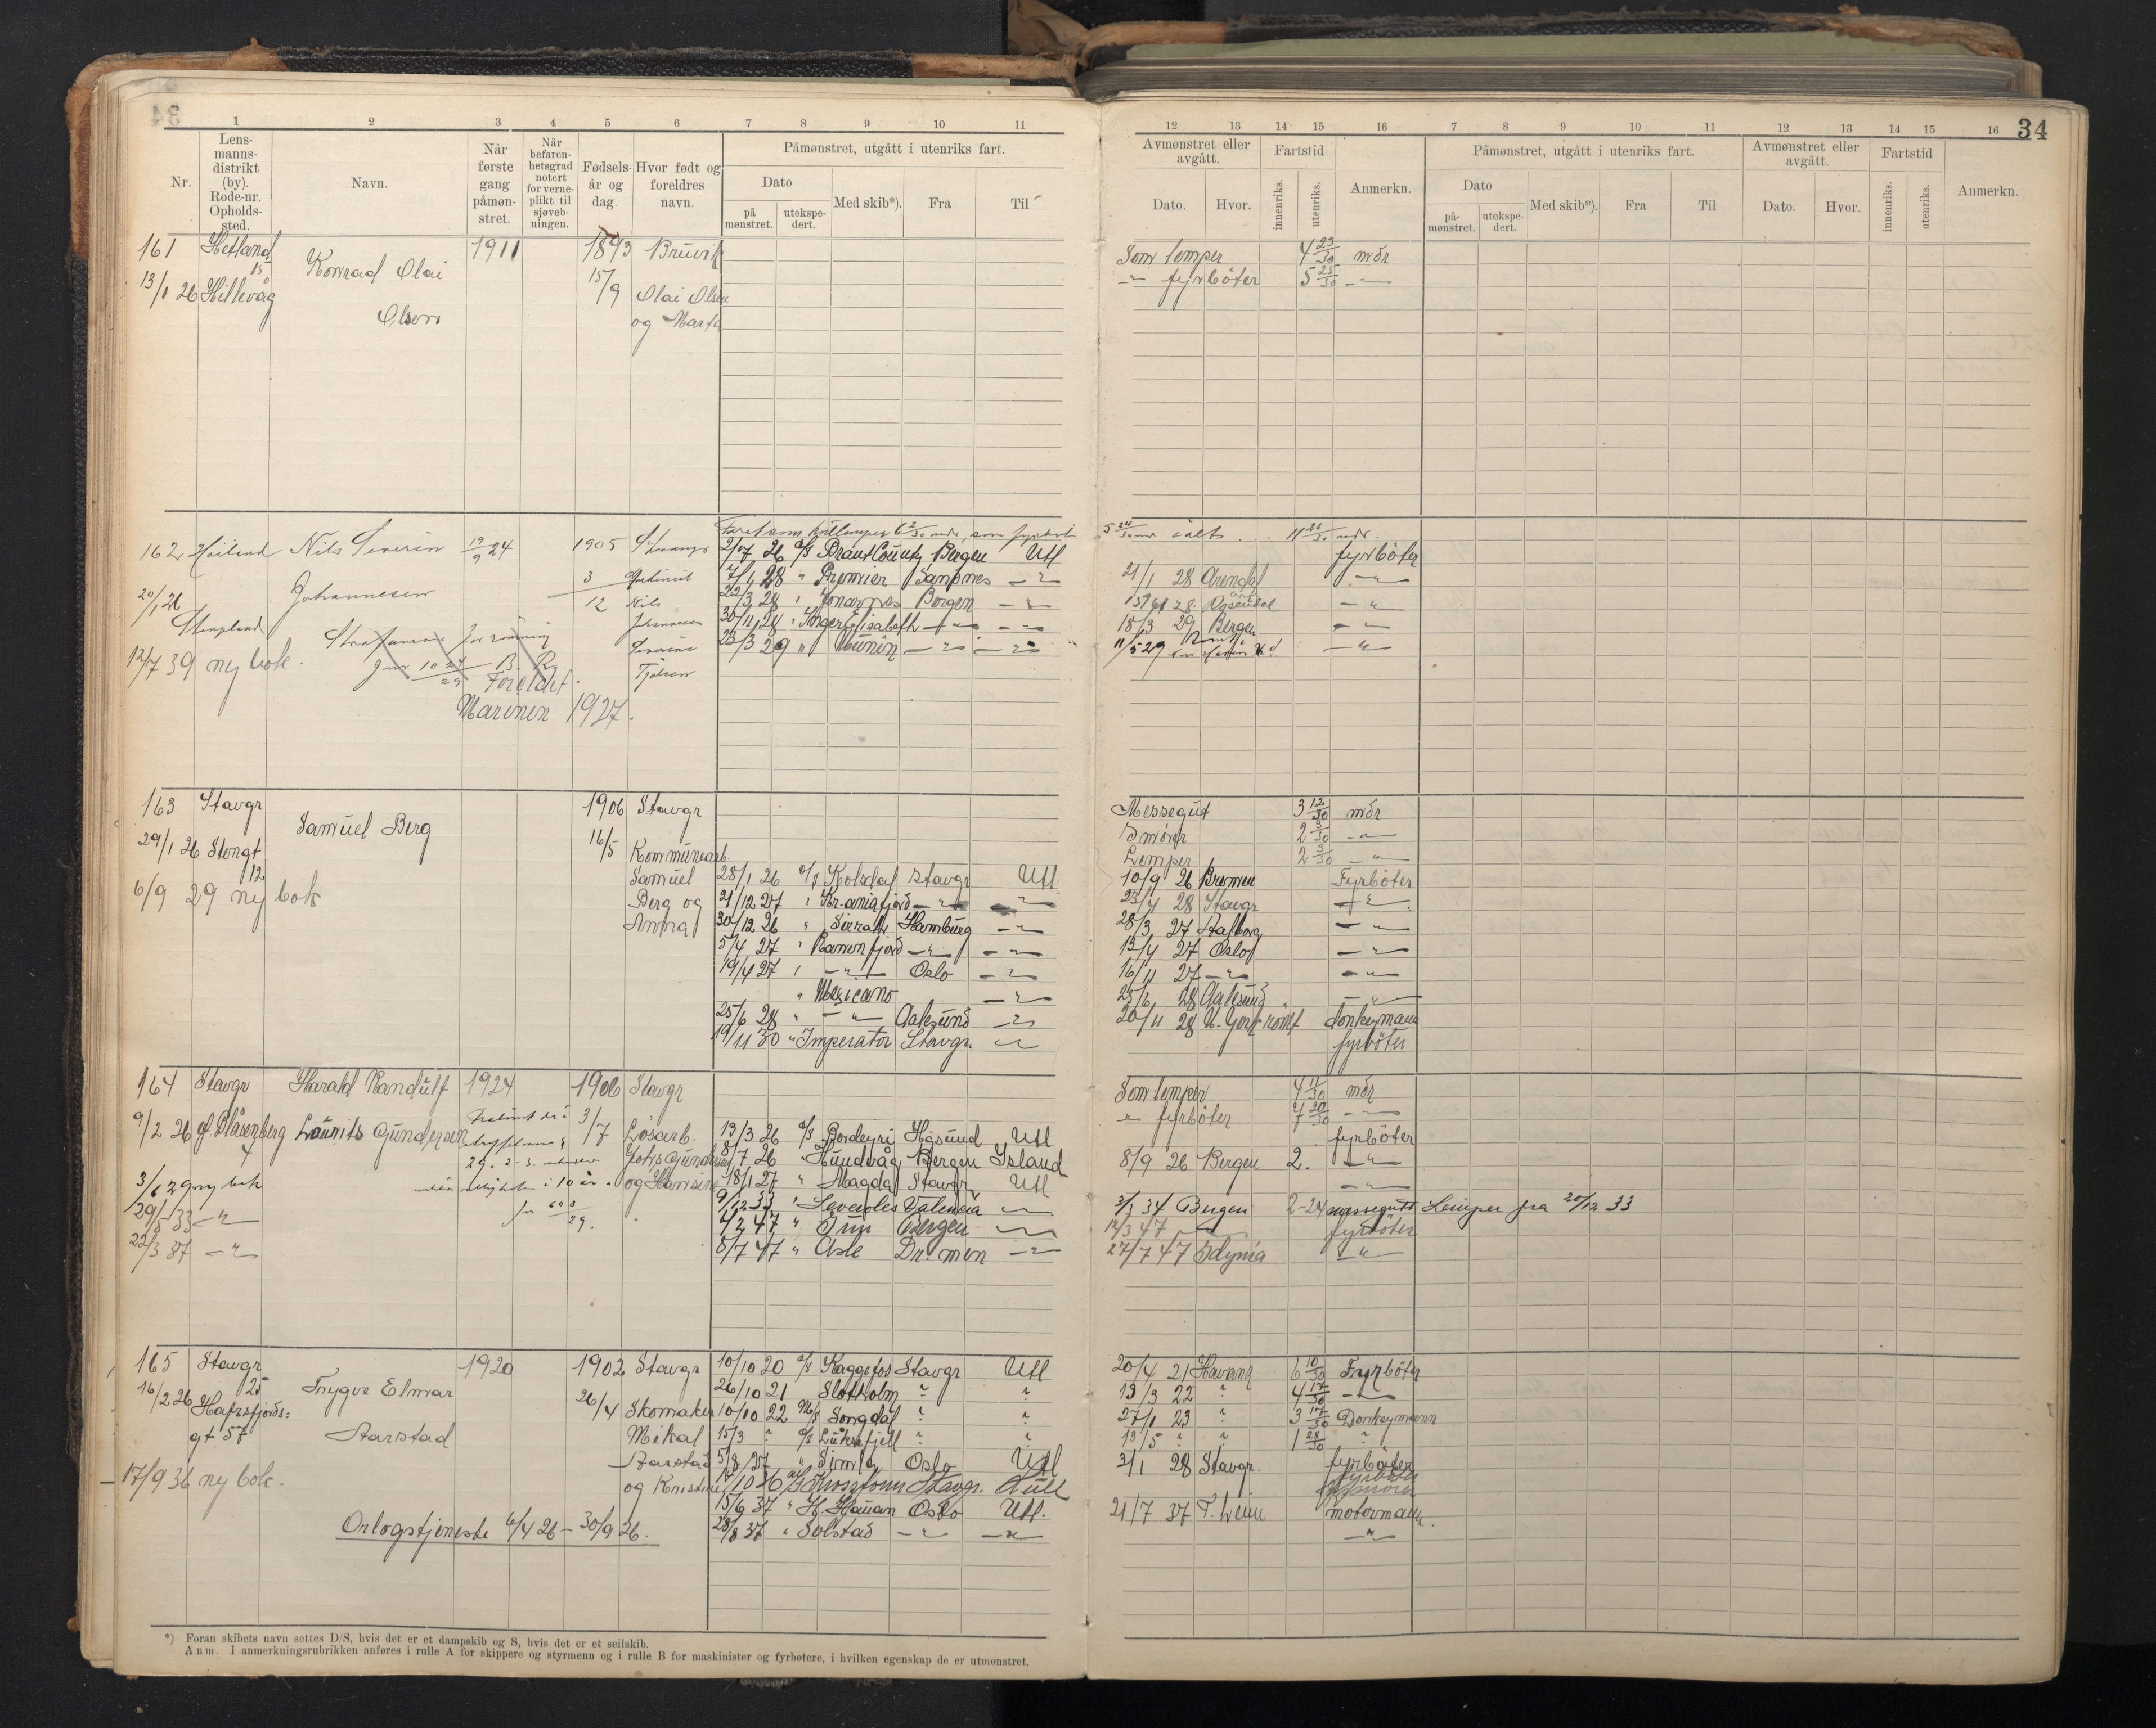 34
1 2 3 4 5 6 7 8 9 10 11
Nr.
Lens-
manns-
distrikt
(by).
Rode-nr.
Opholds-
sted.
Navn.
Når
første
gang
påmøn-
stret.
Når
befaren-
hetsgrad
notert
for verne-
plikt til
sjøveb-
ningen.
Fødsels-
år og
dag.
Hvor født og
foreldres
navn.
Påmønstret, utgått i utenriks fart.
Dato
på
mønstret.
utekspe-
dert.
Med skib*).
Fra
Til
12 13 14 15 16 7 8 9 10 11 12 13 14 15 16
Avmønstret eller
avgått.
Fartstid
Dato.
Hvor.
innenriks.
utenriks.
Anmerkn.
Påmønstret, utgått i utenriks fart.
Dato
på-
mønstret.
utekspe-
dert.
Med skib*).
Fra
Til
Avmønstret eller
avgått.
Fartstid
Dato.
Hvor.
innenriks.
utenriks.
Anmerkn.
161 Hetland 1911 1893 Bruvik Som lemper 4 23/30 mdr
15 Konrad Olai 15/9
13/1 26 Hillevåg Olai Olsen -"- fyrbøter 5 25/30 -"-
Olsen og Marta
162 Høiland Nils Severin 19/9 24 1905
2/7 26 D/S Brant County Bergen Utl fyrbøter
20/1 26 Johannesen 3/12 Nils Johannesen
7/1 28 " Premier Sandnes -"- 21/1 28 Arendal -"-
22/3 28 " Bergen -"-
30/11 28 " Inger Elisabeth -"- -"- 18/3 29 Bergen -"-
23/3 29 " Munin -"- -"- 11/5 29 -"-
12/7 39 ny bok.
Severine
Foreldet.
Marinen 1927.
163 Stavgr 1906 Stavgr Messegut 3 12/30 mdr
Samuel Berg 16/5
29/1 26 Stengt 12 Kommunearb. Lemper 2 3/30 -"-
6/9 29 ny bok Samuel
28/1 26 D/S Kolsdal Stavgr Utl 10/9 26 Bremen Fyrbøter
Berg og 21/12 27 " Kr.aniafjord -"- -"- 23/4 28 Stavgr -"-
Anna 30/12 26 " Hamburg -"- 28/3 27 Aalborg -"-
5/4 27 " Ranenfjord -"- -"- 13/4 27 Oslo -"-
19/4 27 " -"- Oslo -"- 16/11 27 -"- -"-
" Mexicano -"- 25/6 28 Aalesund -"-
25/6 28 " -"- Aalesund -"- 20/11 28 N. York rømt donkeymann
19/11 30 " Imperator Stavgr -"- fyrbøter
164 Stavgr Harald Randulf 1924 1906 Stavgr Som lemper 4 11/30 mdr
9/2 26 Blåsenberg 4 Lauritz Gundersen 3/7 Løsarb. -"- fyrbøter
13/3 26 D/S Bordeyri H.sund Utl fyrbøter
8/7 26 " Hundvåg Bergen Island 8/9 26 Bergen 2. -"-
3/6 29 ny bok og Hansine 18/1 27 " Magda Stavgr Utl -"-
29/5 33 -"- 9/12 33 " Leveroles Valencia -"- 3/3 34 Bergen 2-24 messegutt Lemper fra 20/12 33
22/3 37 -"- 4/2 47 " Bergen -"- 12/3 47 -"- fyrbøter
8/7 47 " Asle Dr.men -"- 27/7 47 Gdynia -"-
165 Stavgr 1920 1902 Stavgr 10/10 20 D/S Kaggefos Stavgr Utl 20/4 21 Havana 6 10/30 Fyrbøter
25 Trygve Elmar 26/10 21 Slotholm " " 13/3 22 " 4 17/30 -"-
16/2 26 Hafrsfjords= 26/4 Skomaker 10/10 22 M/S Songdal " " 27/1 23 " 3 17/30 Donkeymann
gt 57 Aarstad Mikal 15/3 " D/S Luksefjell " " 13/5 " " 1 28/30 "
Aarstad 5/8 27 " Simla Oslo Utl 3/1 28 Stavgr. fyrbøter
17/9 36 ny bok. og Kristine 17/10 36 Stavgr. Hull
15/6 37 " H. Hauan Oslo Utl. 21/7 37 motormann.
Orlogstjeneste 6/4 26 - 30/9 26. 28/8 37 " Solstad -"- -"- -"-
*) Foran skibets navn settes D/S, hvis det er et dampskib og S, hvis det er et seilskib.
Anm. I anmerkningsrubrikken anføres i rulle A for skippere og styrmenn og i rulle B for maskinister og fyrbøtere, i hvilken egenskap de er utmønstret.